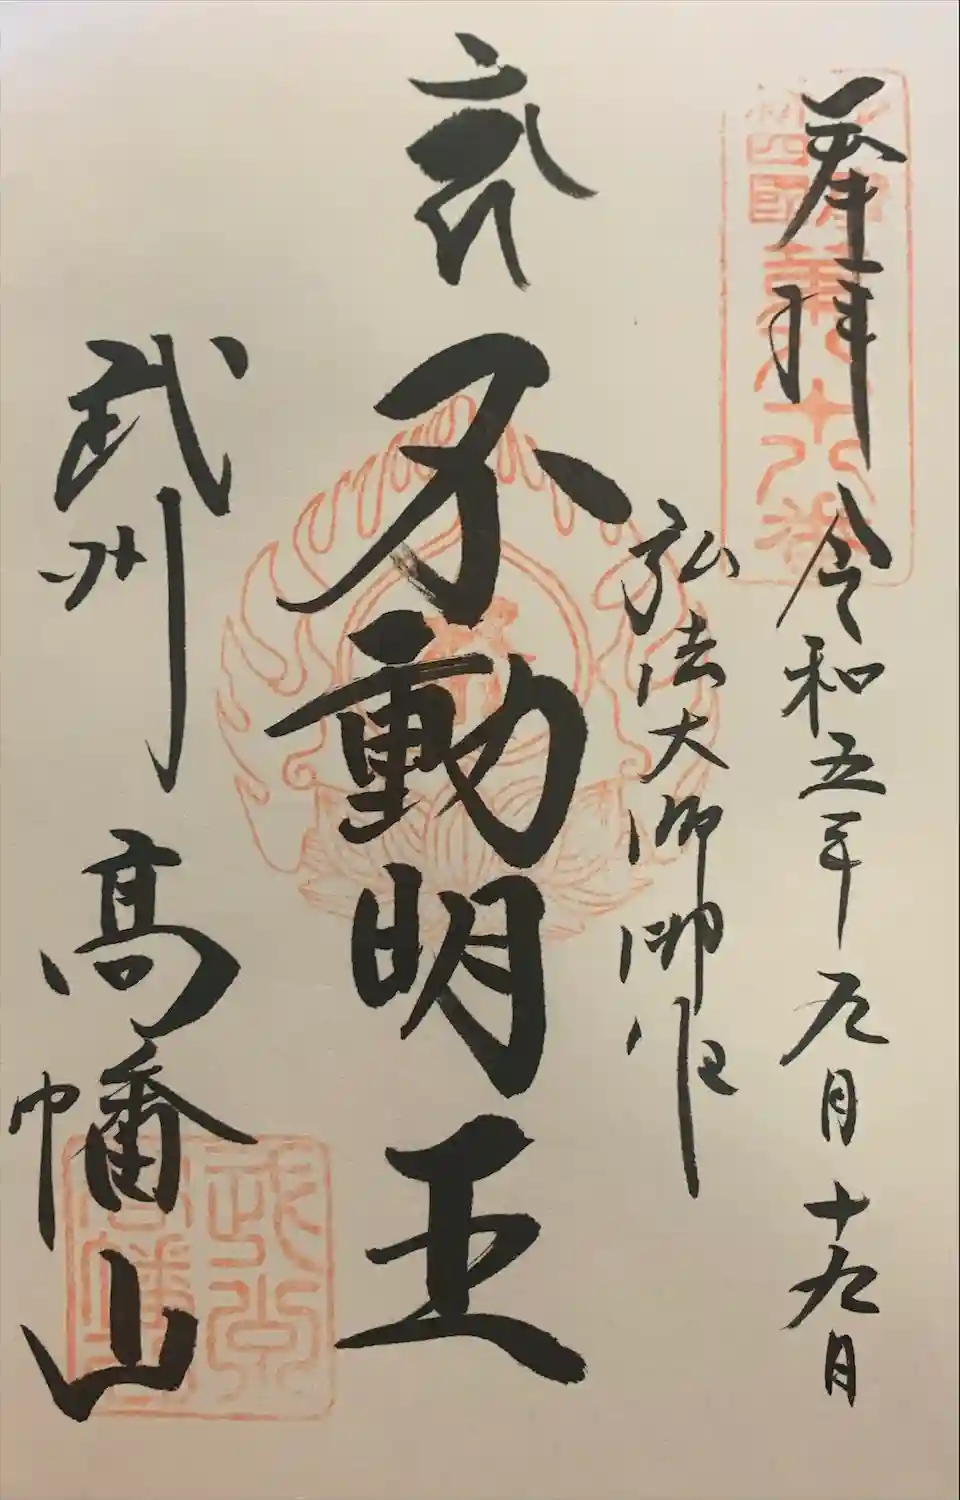 奉拝 令和五年九月十九日
弘法大師御作
不動明王
武州 高幡山